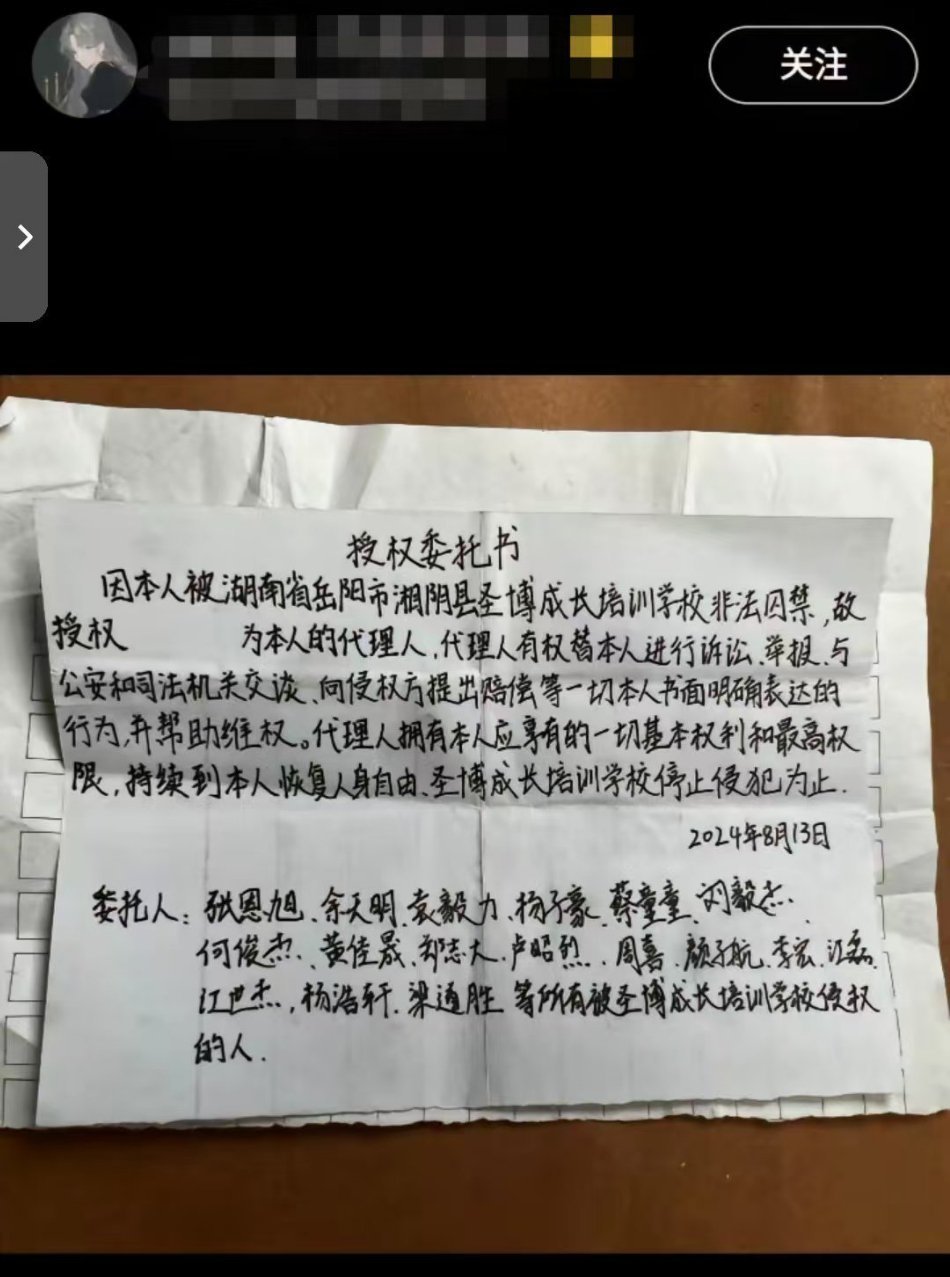 关注
授权委托书
因本人被湖南省岳阳市湘阴县圣博成长培训学校非法囚禁,故
授权 为本人的代理人,代理人有权替本人进行诉讼、举报、与
公安和司法机关交谈、向侵权方提出赔偿等一切本人书面明确表达的
行为,并帮助维权。代理人拥有本人应享有的一切基本权利和最高权
限,持续到本人恢复人身自由、圣博成长培训学校停止侵犯为止.
2024年8月13日
委托人:张恩旭、余天明、袁毅力、杨子豪、蔡童童、刘毅杰、
何俊杰、黄佳晟、郑志大、卢昭烈、周喜、颜子航、李宏、江磊、
江世杰,杨浩轩、梁通胜 等所有被圣博成长培训学校侵权
的人.